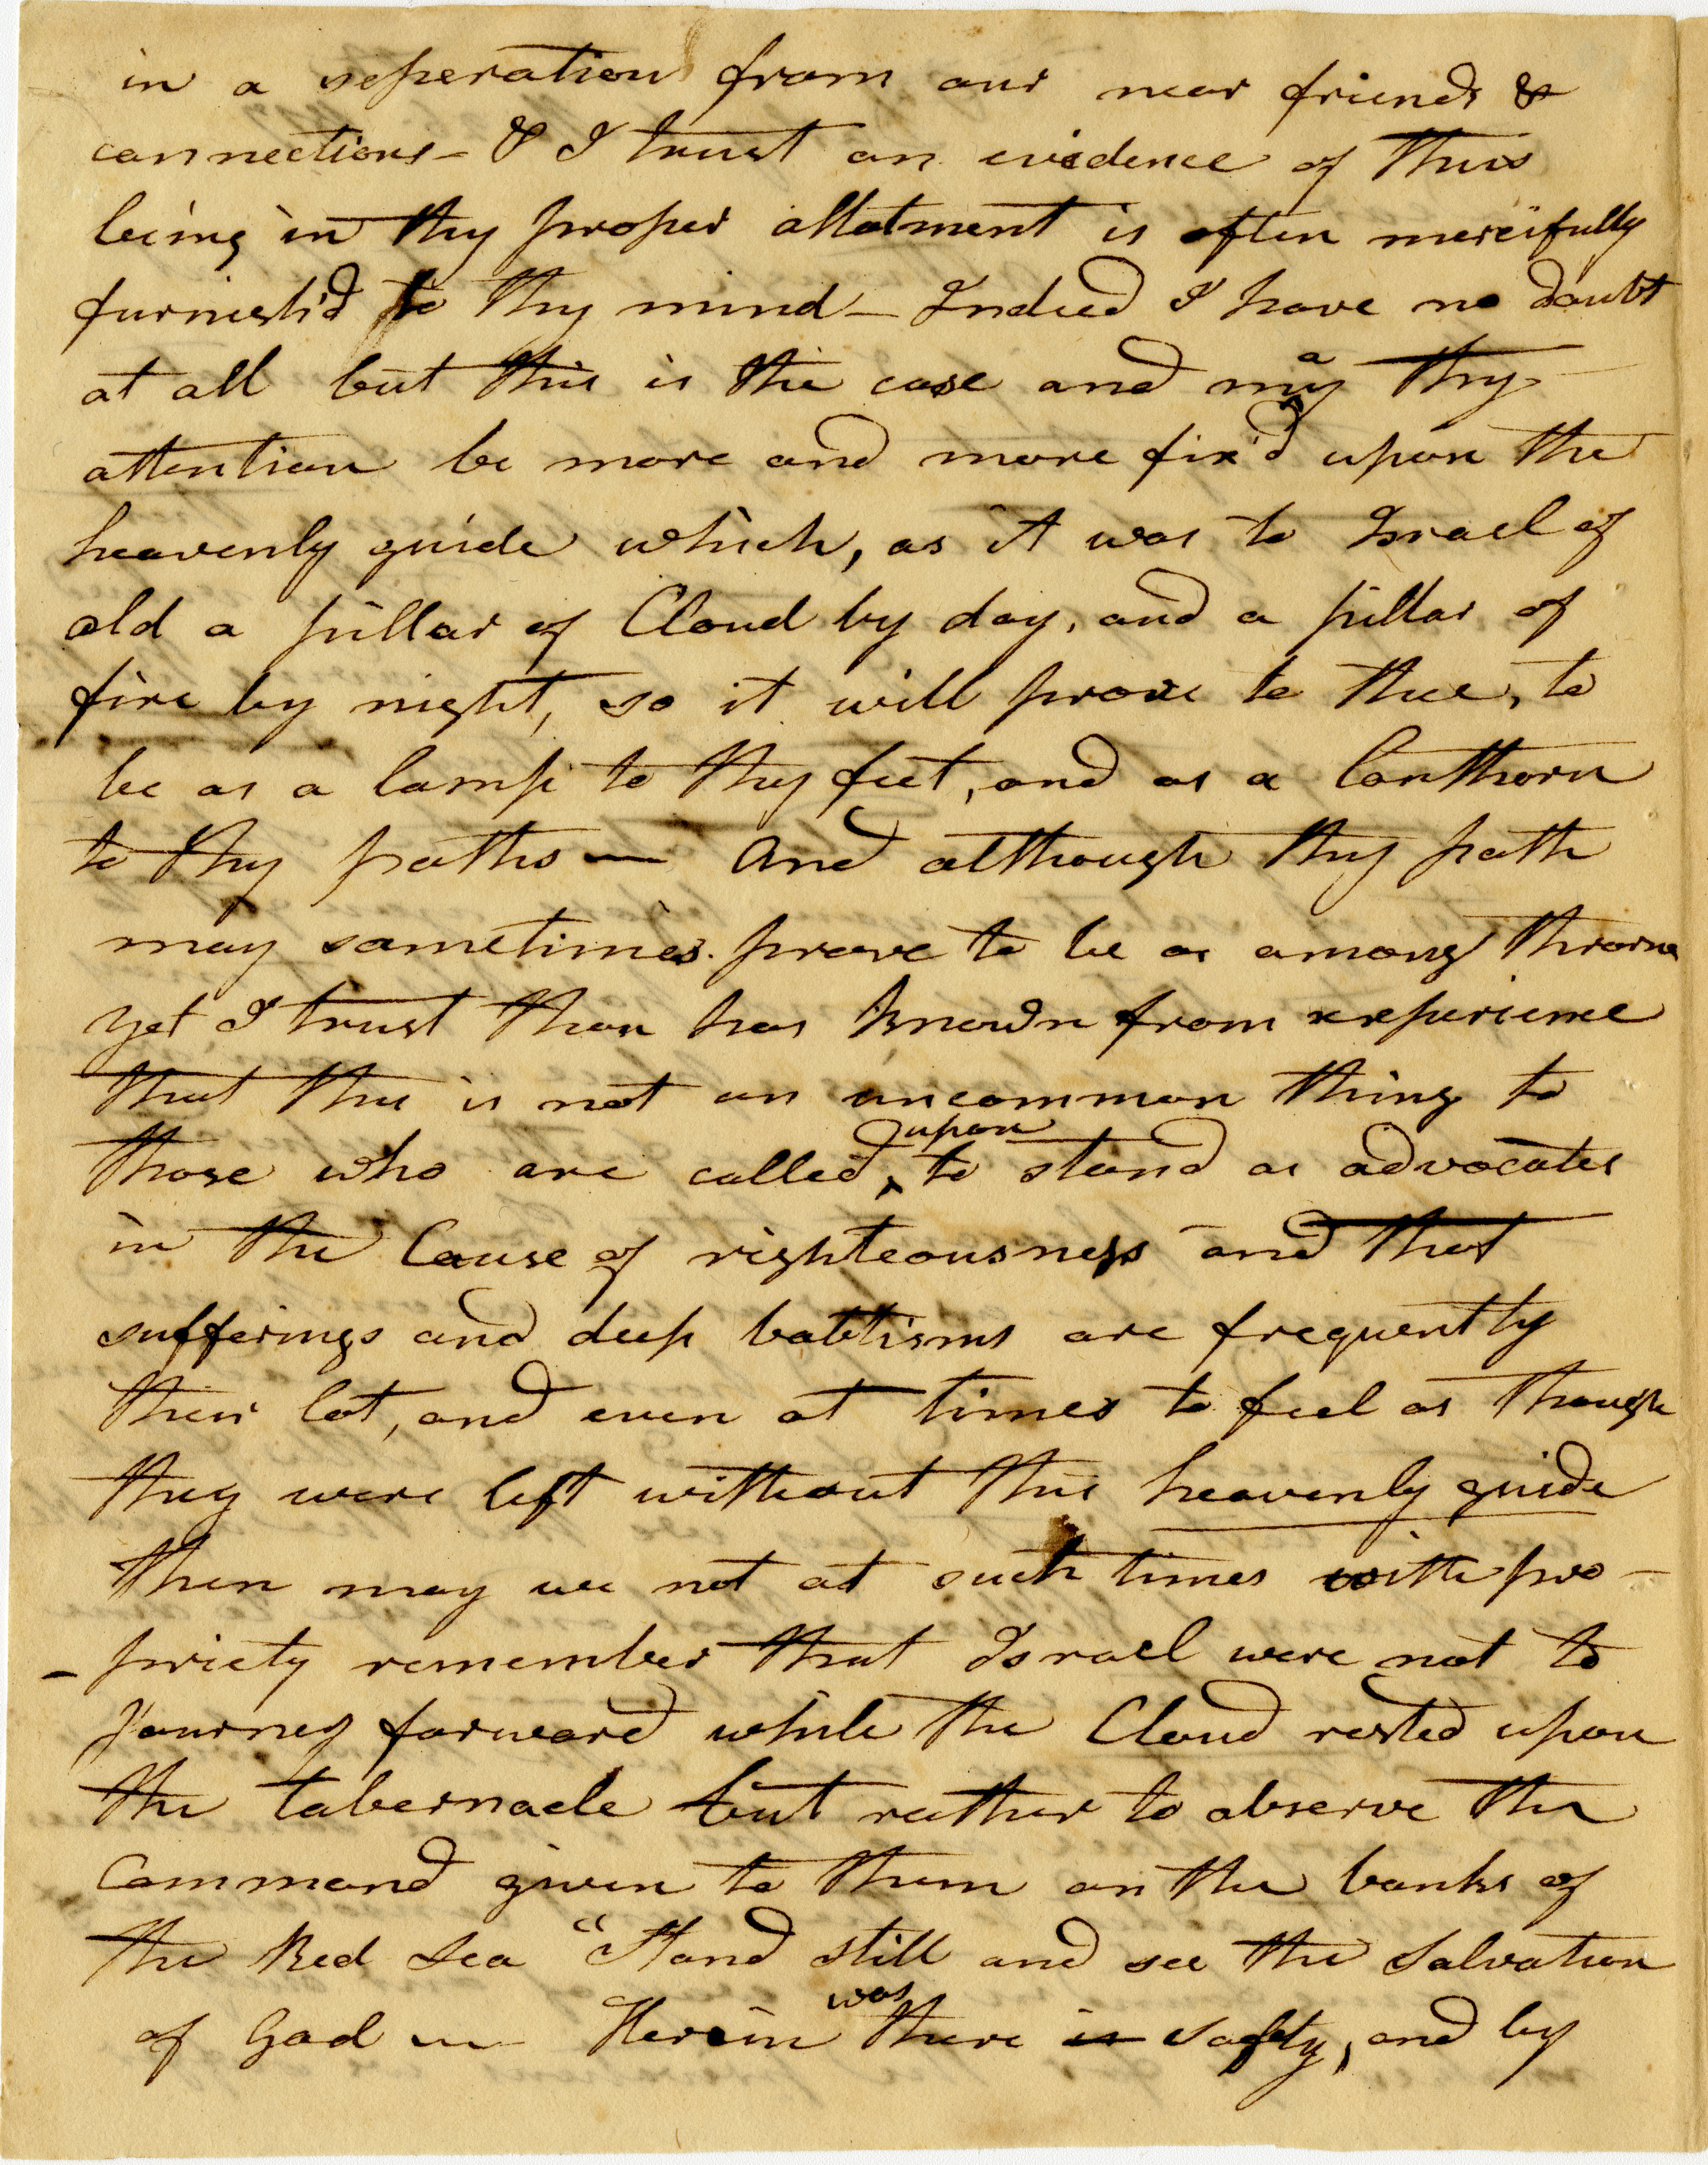 in a seperation from our near friends &
connections - & I trust an evidence of this
being in thy proper allotment is often mercifully
furnish'd to thy mind - Indeed I have no doubt
at all but this is the case and may thy
attention be more and more fix'd upon the
heavenly guide which, as it was to Israel of
old a pillar of Cloud by day, and a pillar of
fire by night, so it will prove to thee, to
be as a lamp to thy feet, and as a lanthorn
to thy paths — And although thy path
may sometimes prove to be as among thorns
yet I trust thou has known from experience
that this is not an uncommon thing to
those who are called upon to stand as advocates
in the Cause of righteousness and that
sufferings and deep babtisms are frequently
their lot, and even at times to feel as though
they were left without this heavenly guide
then may we not at such times with pro-
-priety remember that Israel were not to
Journey forward while the Cloud rested upon
the tabernacle but rather to observe the
Command given to them on the banks of
the Red Sea "Stand still and see the Salvation
of God — Herein was there is safty, and by